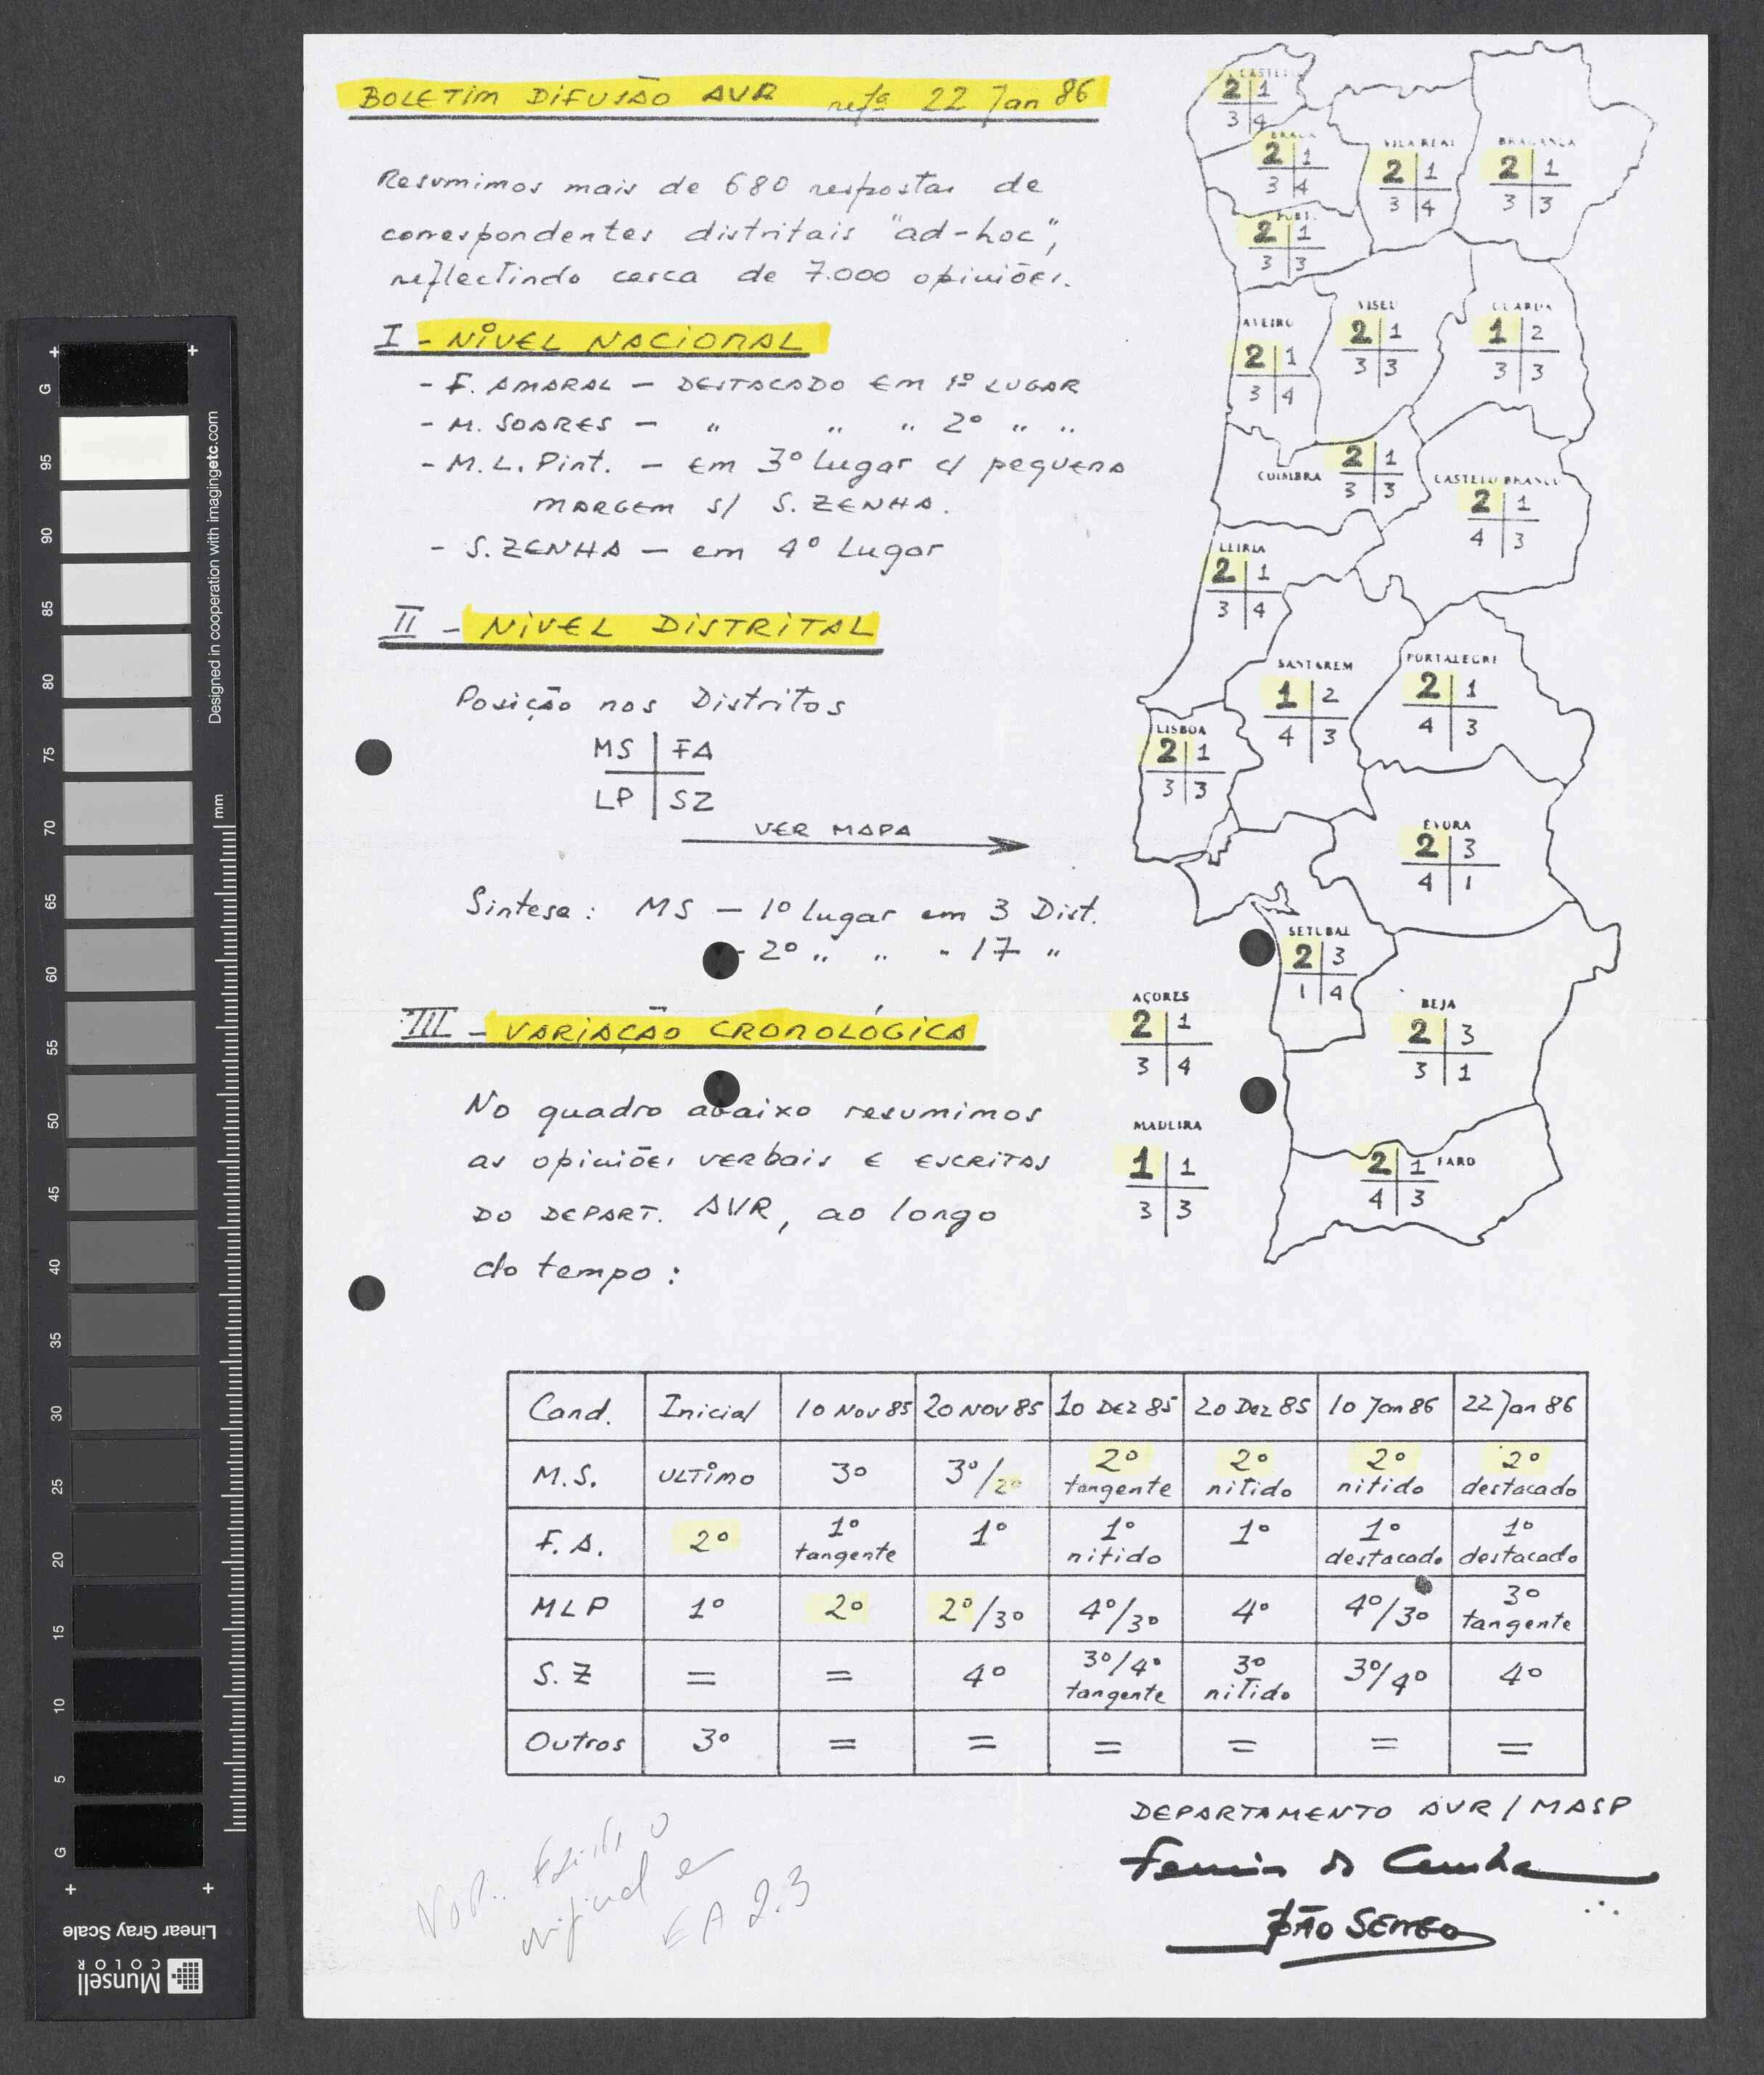 BOLETIM DIFUSÃO AVR refª 22 Jan 86
Resumimos mais de 680 respostas de
correspondentes distritais "ad-hoc",
reflectindo cerca de 7.000 opiniões.
I - NÍVEL NACIONAL
- F. AMARAL - DESTACADO EM 1º LUGAR
- M. SOARES - " " " 2º " "
- M.L. Pint. - em 3º Lugar c/ pequena
margem s/ S. ZENHA.
- S. ZENHA - em 4º Lugar
II - NÍVEL DISTRITAL
Posição nos Distritos
MS FA
LP SZ
VER MAPA
Sintese: MS - 1º Lugar em 3 Dist.
- 2º " " - 17 "
III - VARIAÇÃO CRONOLÓGICA
No quadro abaixo resumimos
as opiniões verbais e escritas
DO DEPART. AVR, ao longo
do tempo:
CASTELO
2 1
3 4
BRAGA
2 1
3 4
VILA REAL
2 1
3 4
BRAGANÇA
2 1
3 3
PORTO
2 1
3 3
AVEIRO
2 1
3 4
VISEU
2 1
3 3
GUARDA
1 2
3 3
COIMBRA
2 1
3 3
CASTELO BRANCO
2 1
4 3
LEIRIA
2 1
3 4
SANTAREM
1 2
4 3
PORTALEGRE
2 1
4 3
LISBOA
2 1
3 3
ÉVORA
2 3
4 1
SETUBAL
2 3
1 4
BEJA
2 3
3 1
AÇORES
2 1
3 4
MADEIRA
1 1
3 3
FARO
2 1
4 3
Cand. Inicial 10 Nov 85 20 Nov 85 10 Dez 85 20 Dez 85 10 Jan 86 22 Jan 86
M.S. ULTIMO 3º 3º/2º 2º tangente 2º nitido 2º nitido 2º destacado
F.A. 2º 1º tangente 1º 1º nitido 1º 1º destacado 1º destacado
MLP 1º 2º 2º/3º 4º/3º 4º 4º/3º 3º tangente
S.Z = = 4º 3º/4º tangente 3º nitido 3º/4º 4º
Outros 3º = = = = = =
DEPARTAMENTO AVR / MASP
EA 2.3
G 95 90 85 80 75 70 65 60 55 50 45 40 35 30 25 20 15 10 5 G
Designed in cooperation with imagingetc.com
mm
Linear Gray Scale
Munsell
COLOR